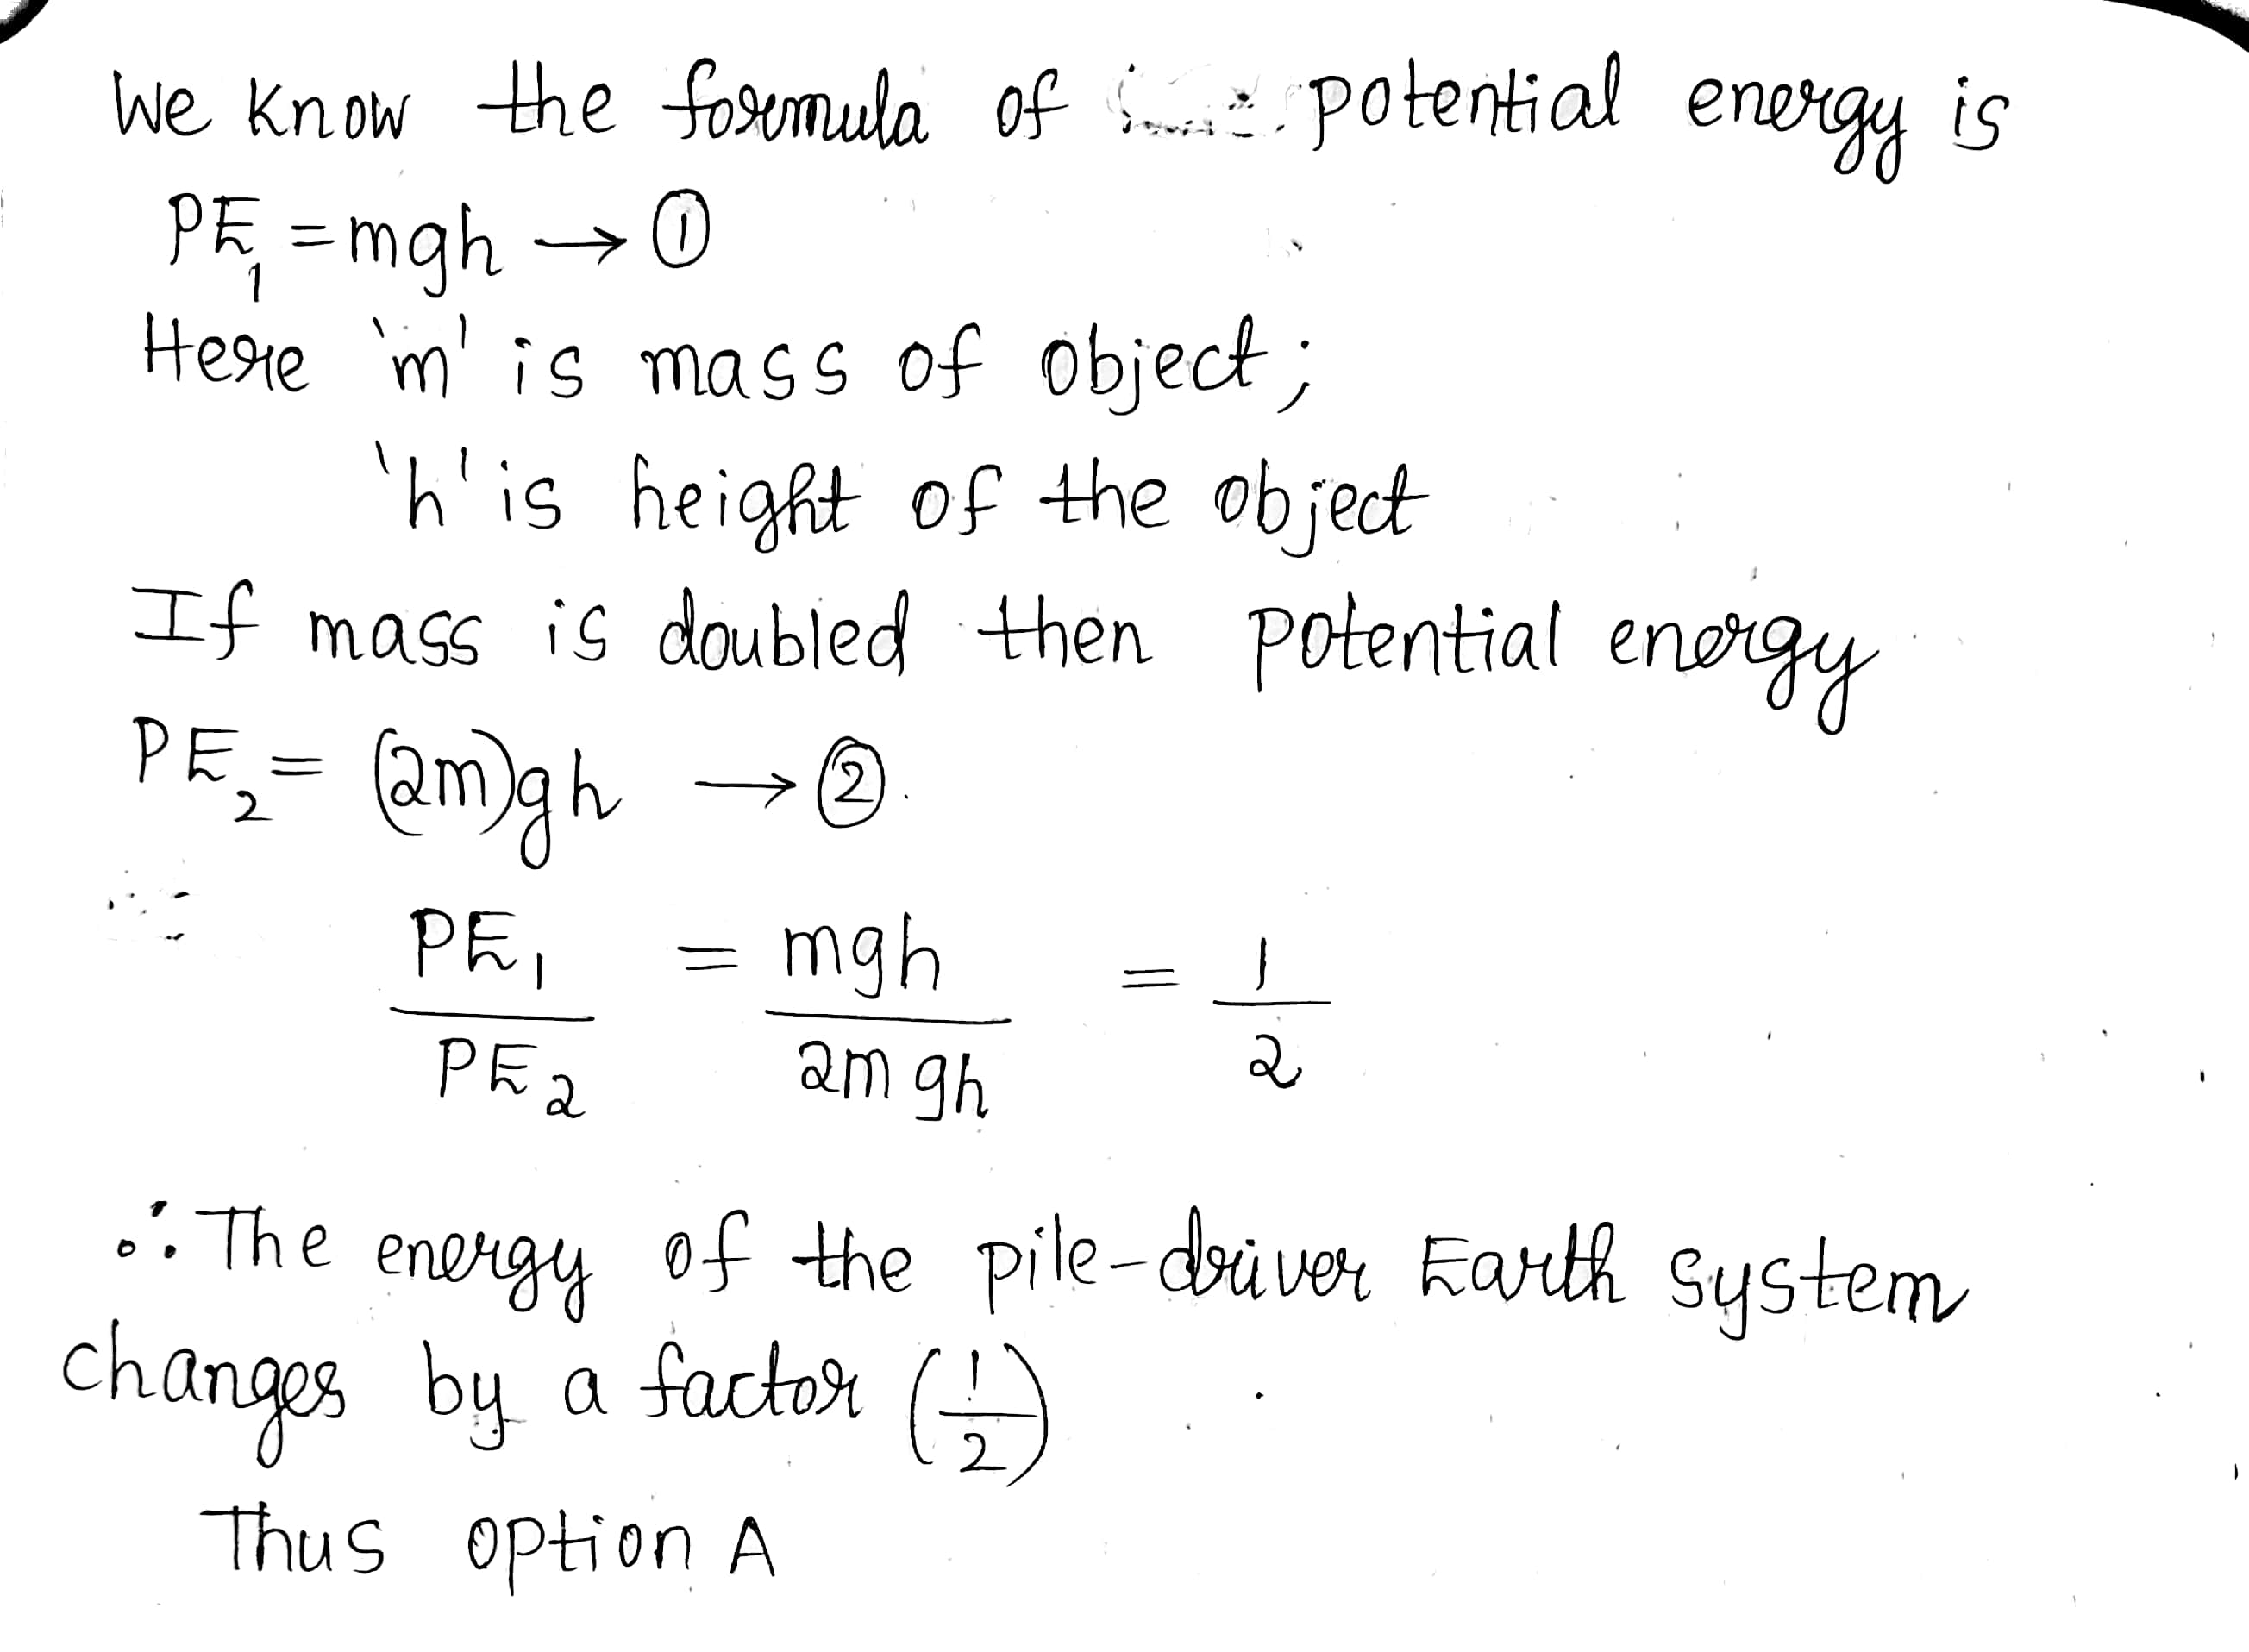 We know the formula of potential energy is
PE₁ = mgh → ①
Here 'm' is mass of object;
'h' is height of the object
If mass is doubled then potential energy
PE₂ = (2m)gh → ②.
PE₁/PE₂ = mgh/2mgh = 1/2
∴ The energy of the pile-driver Earth system
changes by a factor (1/2)
Thus option A